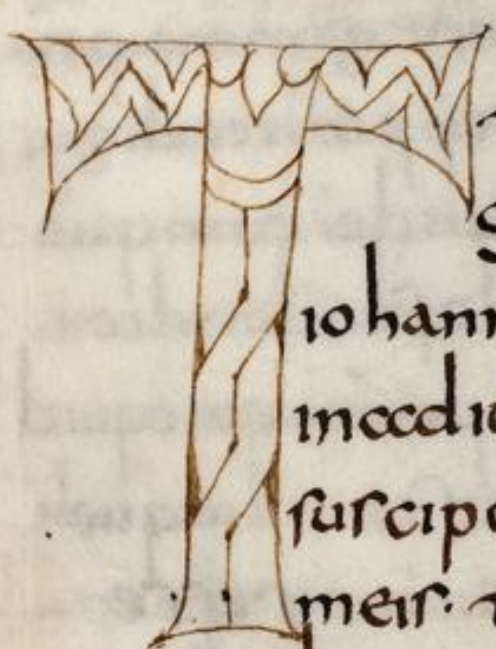 T
iohann
inadiu
suscipe
meis.